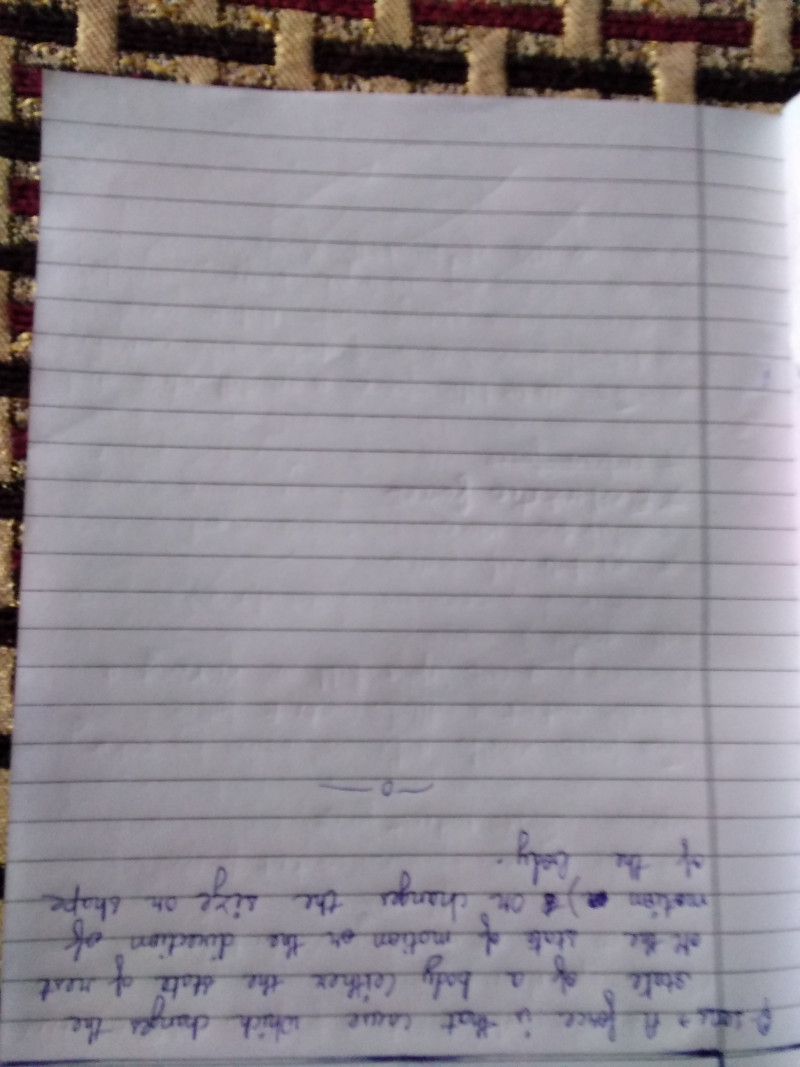 Force → A force is that cause which changes the
state of a body (either the state of rest
or the state of motion or the direction of
motion) or changes the size or shape
of the body.
—0—